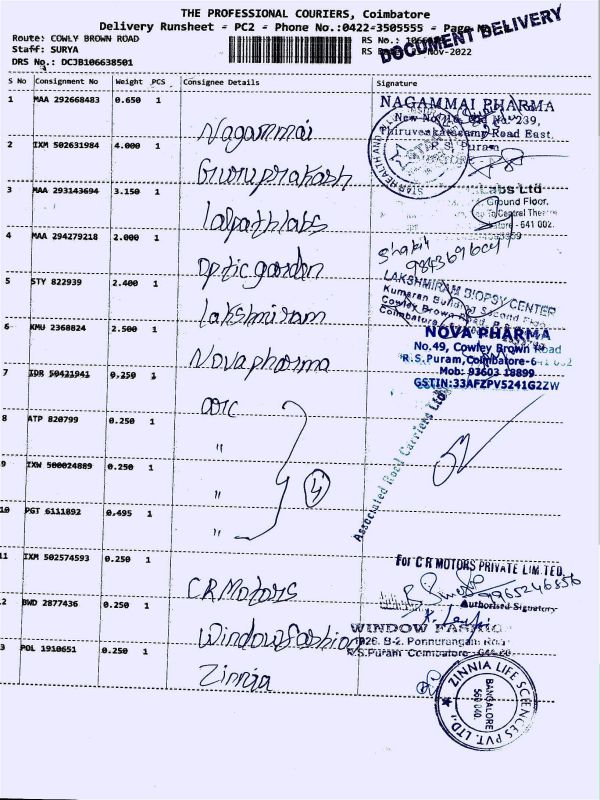 THE PROFESSIONAL COURIERS, Coimbatore
Delivery Runsheet - PC2 - Phone No.:0422-3505555 - Page
DOCUMENT DELIVERY
Route: COWLY BROWN ROAD
RS No.:
Staff: SURYA
RS -Nov-2022
DRS No.: DCJB106638501
S No Consignment No Weight PCS Consignee Details Signature
1 MAA 292668483 0.650 1 Nagammai
NAGAMMAI PHARMA
239,
Thiruvenkatasamy Road East,
R.S. Puram
2 IXM 502631984 4.000 1 Guruprakash
STAR HEALTH AND
3 MAA 293143694 3.150 1 lalpathlabs
Labs Ltd
Ground Floor.
Central Theatre
- 641 002.
4 MAA 294279218 2.000 1 Optic garden
5 STY 822939 2.400 1 Lakshmiram
LAKSHMIRAM BIOPSY CENTER
Kumaran Building Second Floor
Cowley Brown
Coimbatore
6 KMU 2368824 2.500 1 Novapharma
NOVA PHARMA
No.49, Cowley Brown Road
R.S.Puram, Coimbatore-641 002
Mob: 93603 18899
GSTIN:33AFZPV5241G2ZW
7 IDR 50421941 0.250 1
8 ATP 820799 0.250 1 "
9 IXW 500024889 0.250 1 "
10 PGT 6111892 0.495 1 "
4
Associated Road Carriers Ltd
11 IXM 502574593 0.250 1 CR Motors
For C R MOTORS PRIVATE LIMITED
9965246556
Authorised Signatory
2 BWD 2877436 0.250 1 Windowfashion
WINDOW FASHION
Ponnurangam Road
R.S.Puram Coimbatore
3 POL 1910651 0.250 1 Zinnia
ZINNIA LIFE SCIENCES PVT. LTD.,
BANGALORE
560 040.